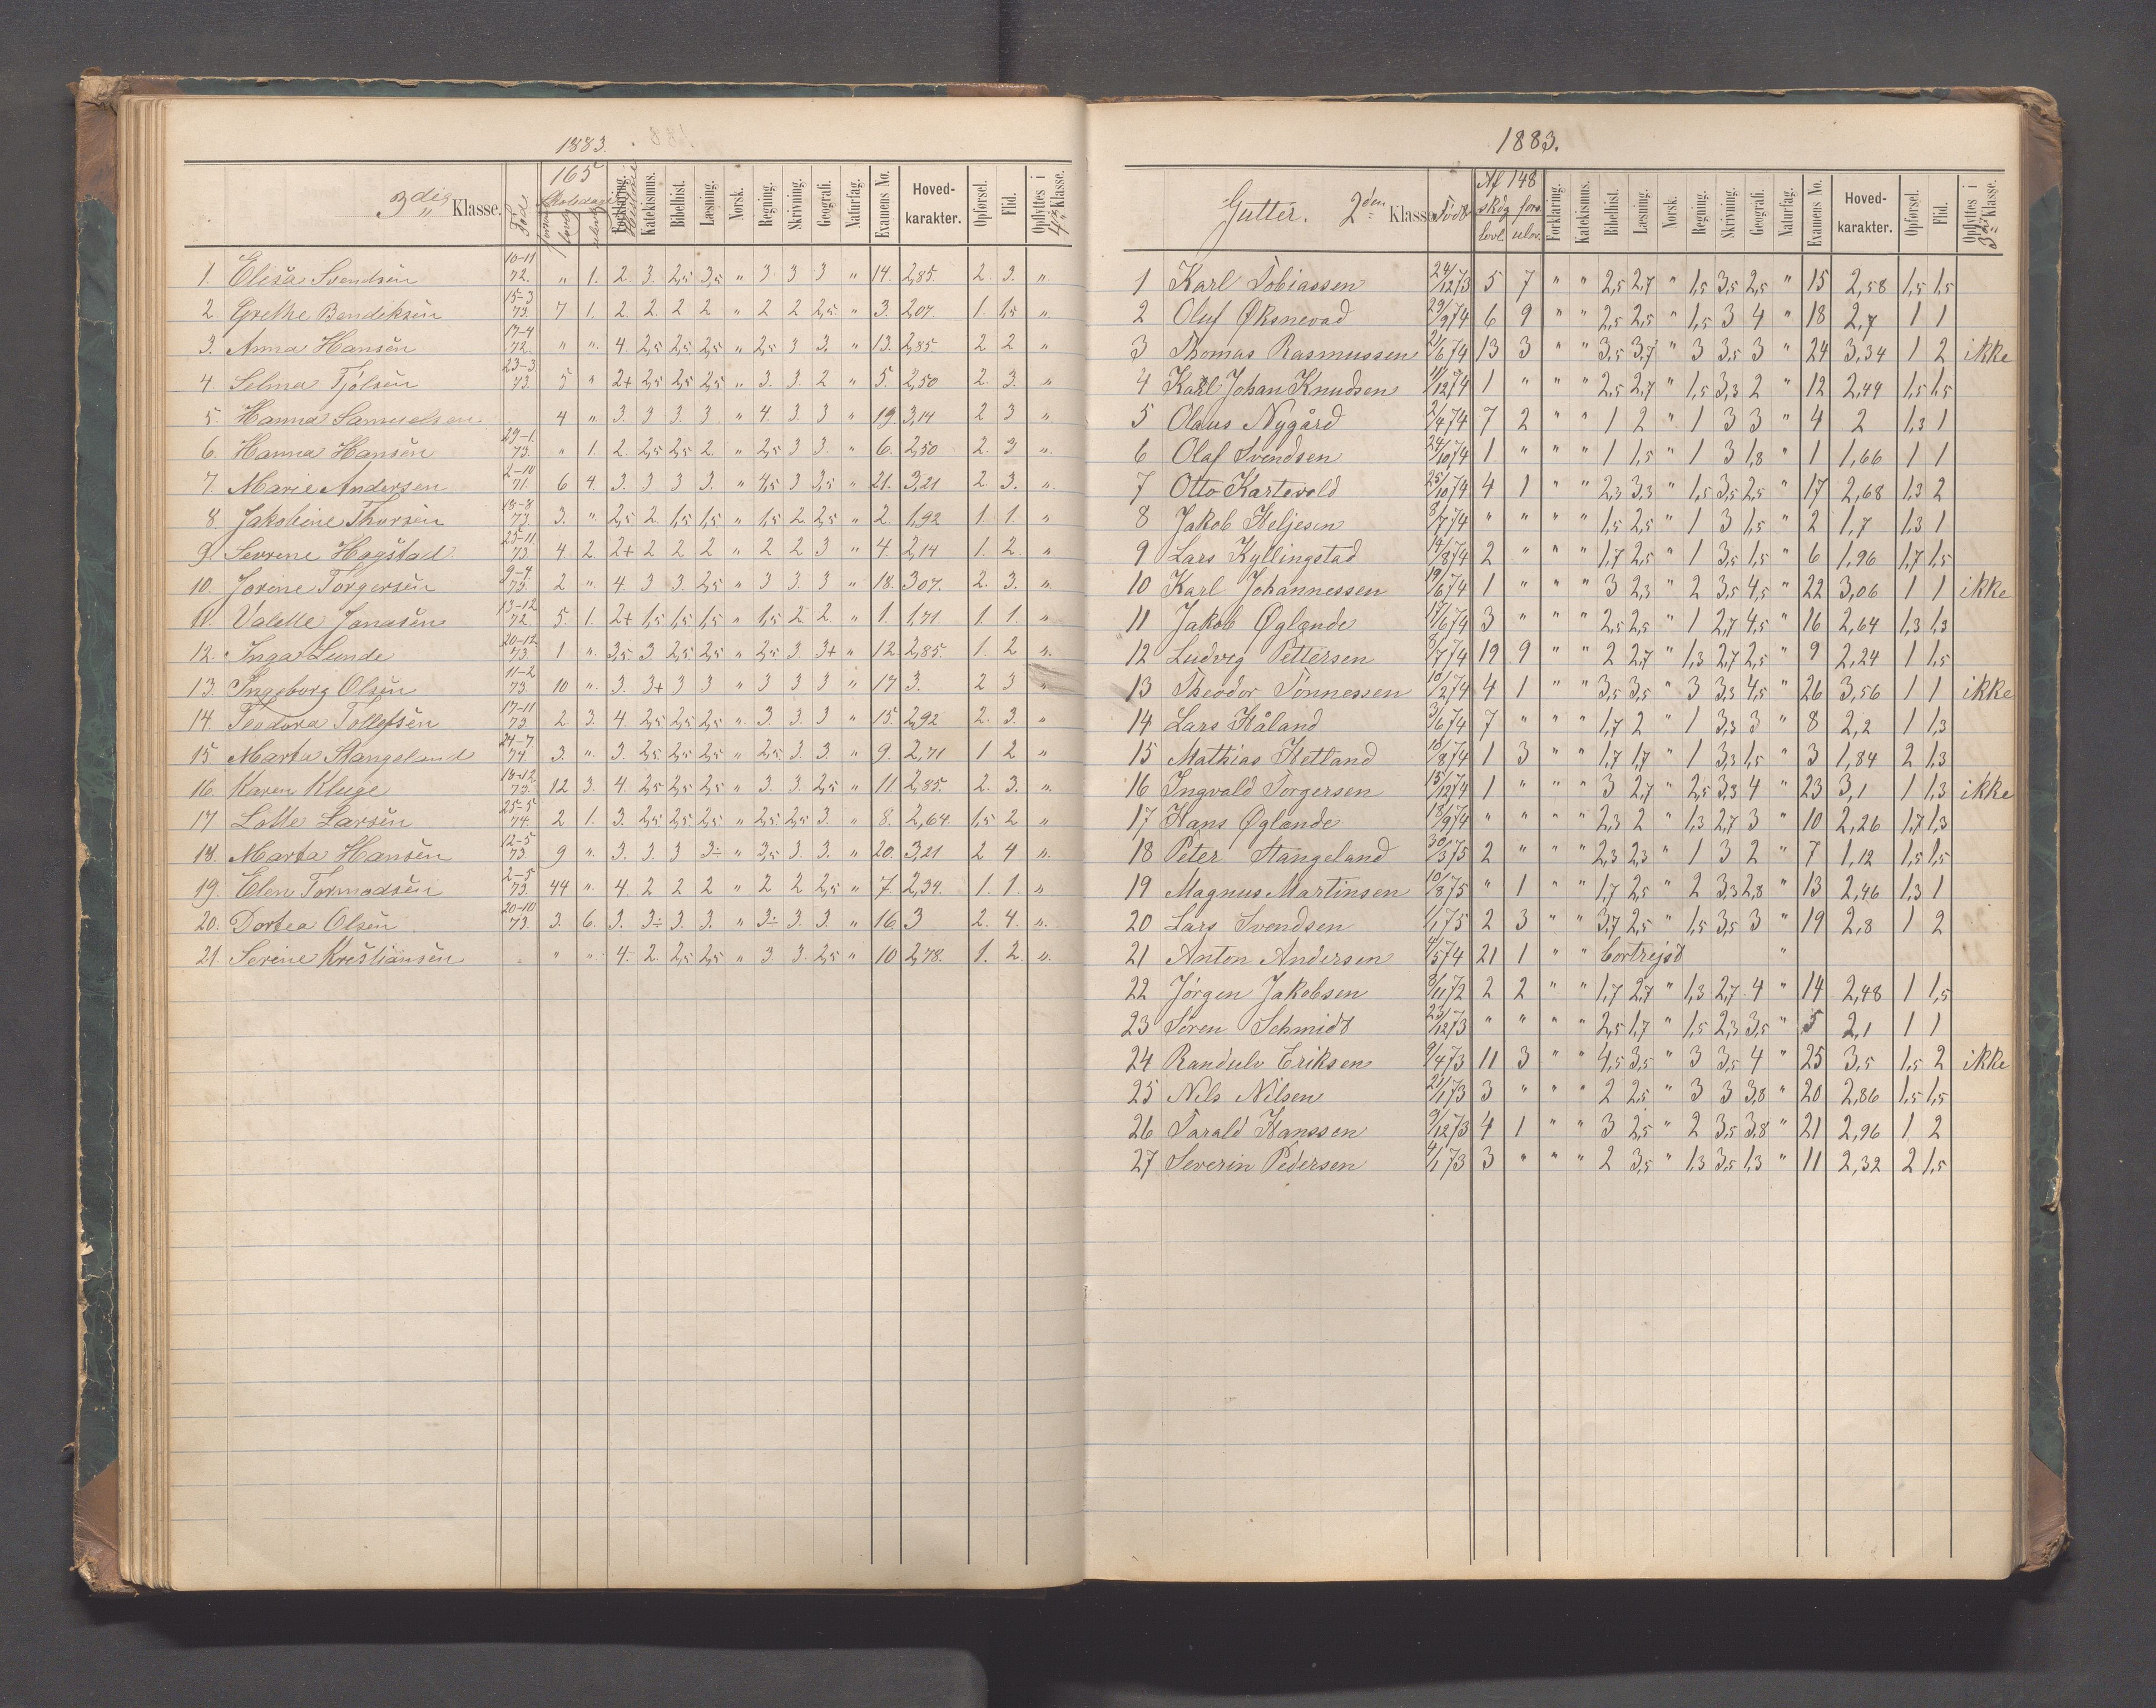 1883.
3die Klasse. Fød 165 Skoledage Katekismus. Bibelhist. Læsning. Norsk. Regning. Skrivning. Geografi. Naturfag. Examens No. Hoved-karakter. Opførsel. Flid. Opflyttes i 4de Klasse.
1. Elisa Svendsen 10-11 72. " 1. 2. 3. 2,5 3,5 " 3 3 3 " 14. 2,85. 2. 3. "
2 Grethe Bendiksen 15-3 73. 7 1. 2. 2. 2 2 " 2 2 2,5 " 3. 2,07. 1. 1,5 "
3. Anna Hansen 17-4 72. " " 4. 2,5 2,5 2,5 " 2,5 3 3. " 13. 2,85. 2 2 "
4. Selma Tjølsen 23-3 73. 5 " 2+ 2,5 2,5 2,5 " 3. 3. 2 " 5. 2,50 2. 3. "
5. Hanna Samuelsen 4 " 3. 3 3. 3 " 4. 3 3 " 19. 3,14 2 3 "
6. Hanna Hansen 29-1. 73. " 1. 2. 2,5 2,5 2. " 2,5 3 3. " 6. 2,50 2. 3 "
7. Marie Andersen 2-10 71 6 4. 3. 3 3 3. " 4,5 3 3,5 " 21. 3,21 2. 3. "
8. Jakobine Thorsen 18-8 73 3. " 2,5 2. 1,5 1,5 " 1,5 2 2,5 " 2. 1,92 1 1. "
9. Sevrene Hagstad 25-11 73 4. 2 2+ 2 2 2 " 2 2 3 " 4. 2,14 1. 2. "
10. Jorine Torgersen 9-4 73. 2 " 4. 3 3 2,5 " 3 3. 3 " 18. 3,07. 2. 3. "
11. Valette Jonasen 13-12 72. 5. 1. 2+ 1,5 1,5 1,5 " 1,5 2. 2. " 1. 1,71. 1. 1. "
12. Inga Lunde 20-12 73. 1 " 3,5 3. 2,5 2,5 " 2,5 3. 3+ " 12. 2,85. 1. 2 "
13. Ingeborg Olsen 11-2 73. 10 " 3. 3+ 3 3 " 3 3 3 " 17 3. 2 3 "
14. Teodora Tollefsen 17-11 73 2. 3. 4. 2,5 2,5 2,5 " 3. 3. 3 " 15. 2,92 2. 3. "
15. Marta Stangeland 24-7. 74 3. " 3. 2,5 2,5 2,5 " 2,5 3. 3. " 9. 2,71 1 2 "
16. Karen Kluge 14-12 73. 12 3. 4. 2,5 2,5 2,5 " 3. 3. 2,5 " 11. 2,85. 2. 3. "
17 Lotte Larsen 25-5 74 2 1. 3. 2,5 2,5 2,5 " 2,5 2,5 3. " 8. 2,64. 1,5 2 "
18. Marta Hansen 12-5 73 9 " 3. 3. 3 3÷ " 3,5 3. 3. " 20. 3,21 2 4 "
19. Elen Tormodsen 2-5 73. 44 " 4. 2 2 2 " 2 2 2,5 " 7. 2,34. 1. 1. "
20. Dortea Olsen 20-10 73. 3. 6. 3. 3÷ 3. 3. " 3÷ 3. 3. " 16. 3 2. 4. "
21. Serine Kristiansen " " 4. 2. 2,5 2,5 " 3. 3. 2,5 " 10 2,78. 1. 2. "
1883.
Gutter. 2den Klasse. Født Af 148 skdg fors. lovl. ulov. Forklaring. Katekismus. Bibelhist. Læsning. Norsk. Regning. Skrivning. Geografi. Naturfag. Examens No. Hoved-karakter. Opførsel. Flid. Opflyttes i 3die Klasse.
1 Karl Tobiassen 24/12 73 5 7 " " 2,5 2,7 " 1,5 3,5 2,5 " 15 2,58 1,5 1,5
2 Oluf Øksnevad 29/9 74 6 9 " " 2,5 2,5 " 1,5 3 4 " 18 2,7 1 1
3 Thomas Rasmussen 21/6 74 13 3 " " 3,5 3,7 " 3 3,5 3 " 24 3,34 1 2 ikke
4 Karl Johan Knudsen 11/12 74 1 " " " 2,5 2,7 " 1,5 3,3 2 " 12 2,44 1,5 1,5
5 Olaus Nygård 2/4 74 7 2 " " 1 2 " 1 3 3 " 4 2 1,3 1
6 Olaf Svendsen 24/10 74 1 " " " 1 1,5 " 1 3 1,8 " 1 1,66 1 1
7 Otto Kartevold 25/10 74 4 1 " " 2,3 3,3 " 1,5 3,5 2,5 " 17 2,68 1,3 2
8 Jakob Heljesen 8/7 74 " " " " 1,5 2,5 " 1 3 1,5 " 2 1,7 1,3 1
9 Lars Kyllingstad 14/8 74 2 " " " 1,7 2,5 " 1 3,5 1,5 " 6 1,96 1,7 1,5
10 Karl Johannessen 19/6 74 1 " " " 3 2,3 " 2 3,5 4,5 " 22 3,06 1 1 ikke
11 Jakob Øglænde 17/6 74 3 " " " 2,5 2,5 " 1 2,7 4,5 " 16 2,64 1,3 1,3
12 Ludvig Pettersen 8/7 74 19 9 " " 2 2,7 " 1,3 2,7 2,5 " 9 2,24 1 1,5
13 Theodor Tønnessen 10/2 74 4 1 " " 3,5 3,5 " 3 3,3 4,5 " 26 3,56 1 1 ikke
14 Lars Håland 3/6 74 7 " " " 1,7 2 " 1 3,3 3 " 8 2,2 1 1,3
15 Mathias Hetland 18/8 74 1 3 " " 1,7 1,7 " 1 3,3 1,5 " 3 1,84 2 1,3
16 Ingvald Torgersen 15/12 74 1 " " " 3 2,7 " 2,5 3,3 4 " 23 3,1 1 1,3 ikke
17 Hans Øglænde 18/9 74 " " " " 2,3 2 " 1,3 2,7 3 " 10 2,26 1,7 1,3
18 Peter Stangeland 30/3 75 2 " " " 2,3 2,3 " 1 3 2 " 7 1,12 1,5 1,5
19 Magnus Martinsen 10/8 75 " 1 " " 1,7 2,5 " 2 3,3 2,8 " 13 2,46 1,3 1
20 Lars Svendsen 1/1 75 2 3 " " 3,7 2,5 " 1,5 3,5 3 " 19 2,8 1 2
21 Anton Andersen 4/5 74 21 1 " " bortrejst "
22 Jörgen Jakobsen 8/11 72 2 2 " " 1,7 2,7 " 1,3 2,7 4 " 14 2,48 1 1,5
23 Sören Schmidt 23/12 73 " " " " 2,5 1,7 " 1,5 2,3 3,5 " 5 2,1 1 1
24 Randulv Eriksen 9/4 73 11 3 " " 4,5 3,5 " 3 3,5 4 " 25 3,5 1,5 2 ikke
25 Nils Nilsen 21/1 73 3 " " " 2 2,5 " 3 3 3,8 " 20 2,86 1,5 1,5
26 Tarald Hanssen 9/12 73 4 1 " " 3 2,5 " 2 3,5 3,8 " 21 2,96 1 2
27 Severin Pedersen 4/1 73 3 " " " 2 3,5 " 1,3 3,5 1,3 " 11 2,32 2 1,5